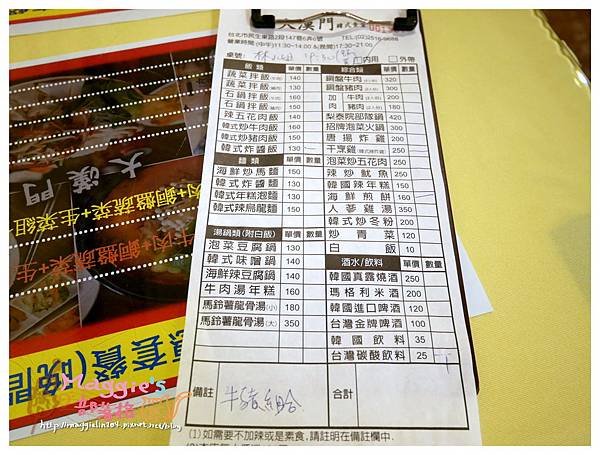 大漢門 韓式食堂
台北市民生東路2段147巷6弄6號 TEL:(02)2516-9686
營業時間 (中午)11:30~14:00 &(晚間)17:30~21:00
桌號: 林小姐 □內用 □外帶
飯類 單價 數量
蔬菜拌飯 140
蔬菜拌飯 130
石鍋拌飯 160
石鍋拌飯 150
辣五花肉飯 140
韓式炒牛肉飯 160
韓式炒豬肉飯 150
韓式炸醬飯 130
麵類 單價 數量
海鮮炒馬麵 150
韓式炸醬麵 130
韓式年糕泡麵 130
韓式辣烏龍麵 150
湯鍋類(附白飯) 單價 數量
泡菜豆腐鍋 130
韓式味噌鍋 130
海鮮辣豆腐鍋 140
牛肉湯年糕 160
馬鈴薯龍骨湯(小) 180
馬鈴薯龍骨湯(大) 350
綜合類 單價 數量
銅盤牛肉 320
銅盤豬肉 300
加牛肉 200
肉豬肉 180
梨泰院部隊鍋 420
招牌泡菜火鍋 300
唐揚炸雞 200
干烹雞 250
泡菜炒五花肉 250
辣炒魷魚 250
韓國辣年糕 150
海鮮煎餅 160
人蔘雞湯 350
韓式炒冬粉 200
炒青菜 120
白飯 10
酒水/飲料 單價 數量
韓國真露燒酒 250
瑪格利米酒 200
韓國進口啤酒 120
台灣金牌啤酒 100
韓國飲料 35
台灣碳酸飲料 25
備註 牛豬組合 合計
(1)如需要不加辣或是素食,請註明在備註欄中.
大漢門
Maggie's
部落格
http://maggielin204.pixnet.net/blog